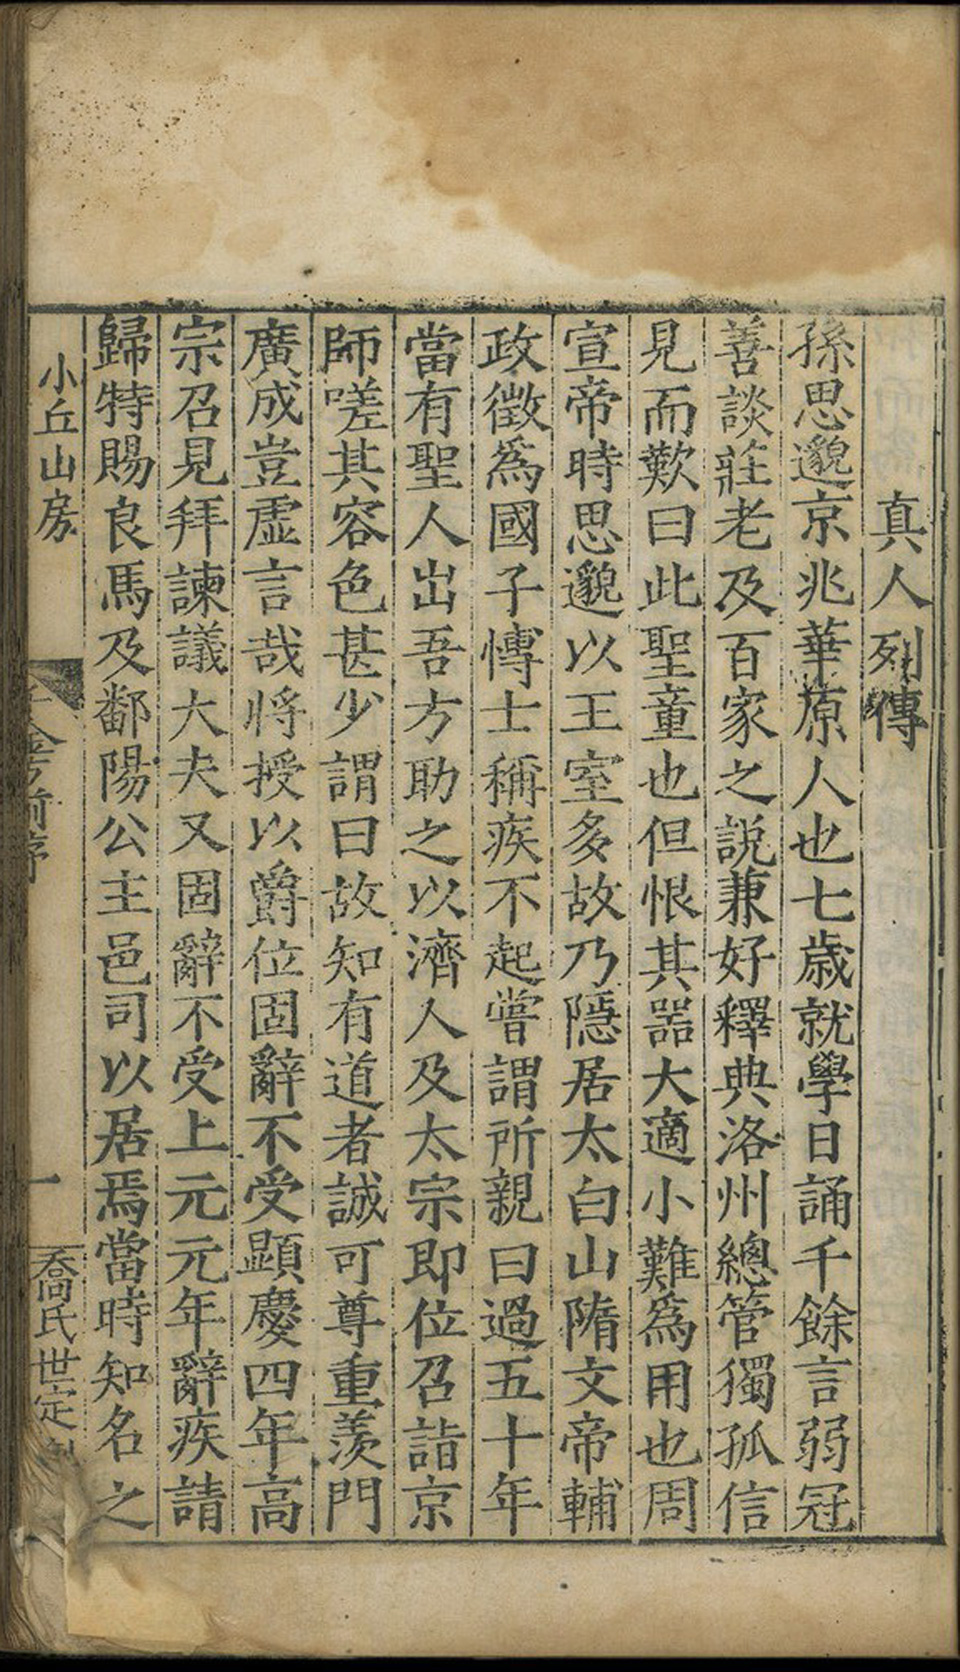 真人列傳
孫思邈京兆華原人也七歳就學日誦千餘言弱冠
善談莊老及百家之説兼好釋典洛州總管獨孤信
見而歎曰此聖童也但恨其噐大適小難爲用也周
宣帝時思邈以王室多故乃隱居太白山隋文帝輔
政徵爲國子愽士稱疾不起甞謂所親曰過五十年
當有聖人出吾方助之以濟人及太宗即位召詣京
師嗟其容色甚少謂曰故知有道者誠可尊重羨門
廣成豈虛言哉將授以爵位固辭不受顯慶四年高
宗召見拜諫議大夫又固辭不受上元元年辭疾請
歸特賜良馬及鄱陽公主邑司以居焉當時知名之
小丘山房
千金方前序
一
喬氏世定